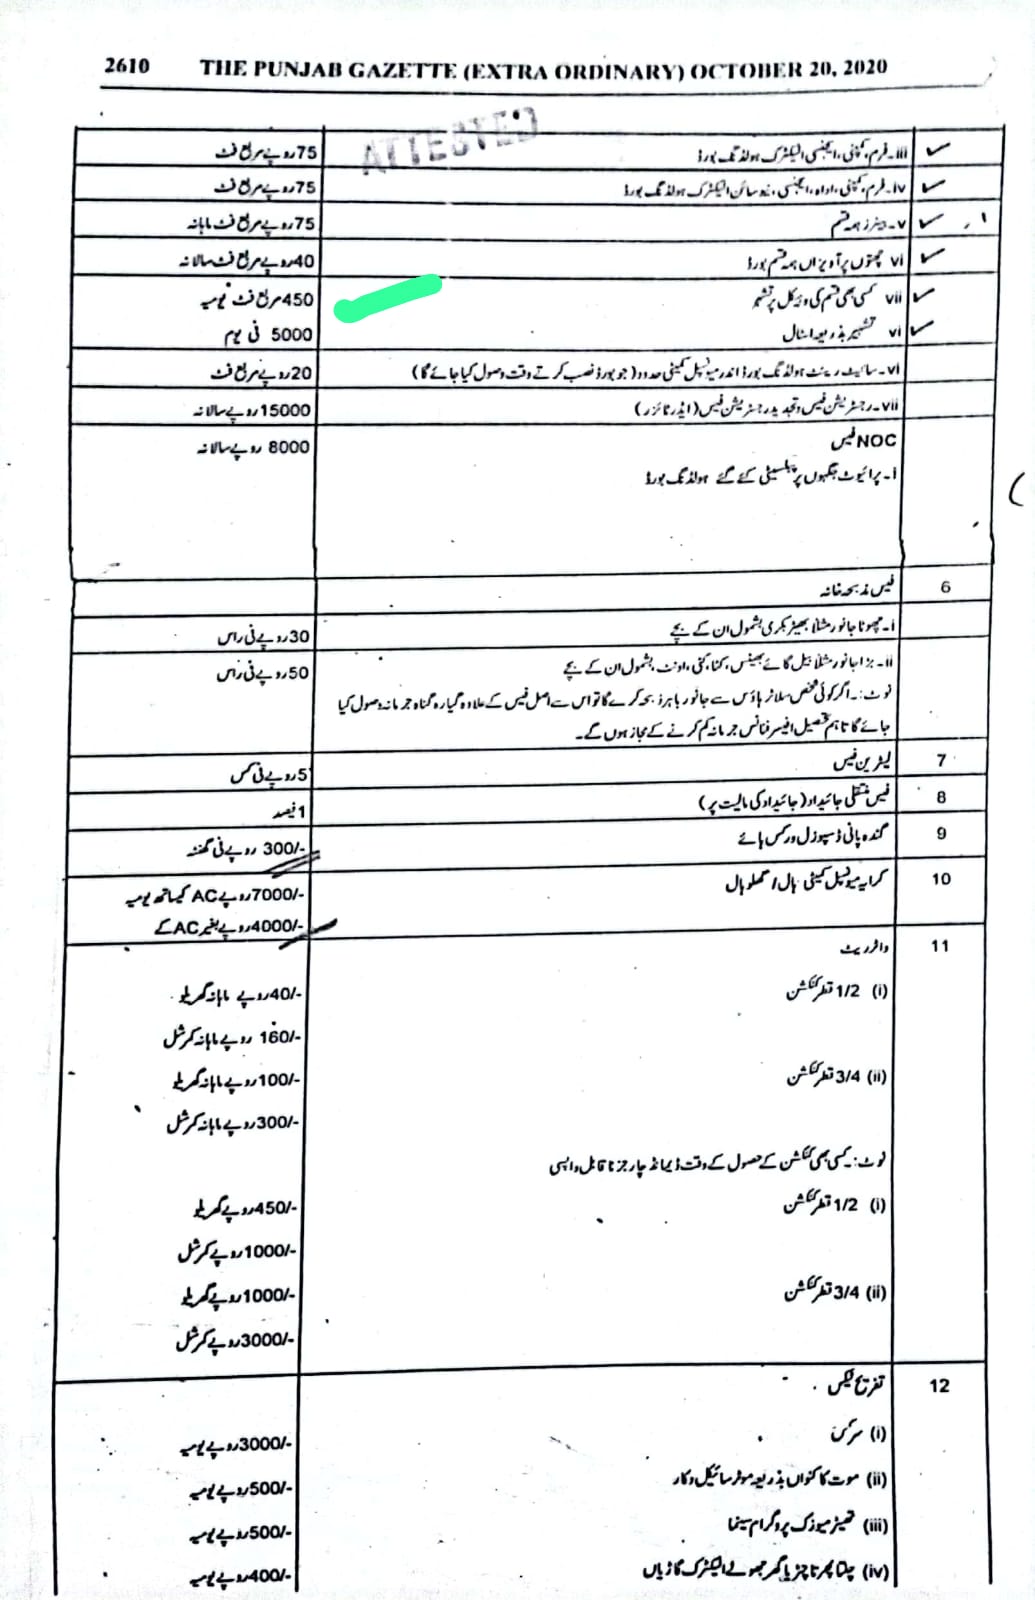 2610 THE PUNJAB GAZETTE (EXTRA ORDINARY) OCTOBER 20, 2020
ATTESTED
iii۔ فرم، کمپنی، ایجنسی الیکٹرک ہولڈنگ بورڈ 75روپے مربع فٹ
iv۔ فرم، کمپنی، ادارہ، ایجنسی، نیو سائن الیکٹرک ہولڈنگ بورڈ 75روپے مربع فٹ
v۔ بینرز ہمہ قسم 75روپے مربع فٹ ماہانہ
vi چھتوں پر آویزاں ہمہ قسم بورڈ 40روپے مربع فٹ سالانہ
vii کسی بھی قسم کی وہیکل پر تشہیر 450مربع فٹ یومیہ
vi تشہیر بذریعہ سٹال 5000 فی یوم
vi۔ سائیٹ رینٹ ہولڈنگ بورڈ اندر میونسپل کمیٹی حدود (جو بورڈ نصب کرتے وقت وصول کیا جائے گا) 20روپے مربع فٹ
vii۔ رجسٹریشن فیس و تجدید رجسٹریشن فیس (ایڈورٹائزر) 15000روپے سالانہ
NOC فیس 8000 روپے سالانہ
i۔ پرائیوٹ جگہوں پر پبلسیٹی کئے گئے ہولڈنگ بورڈ
6 فیس مذبحہ خانہ
i۔ چھوٹا جانور مثلاً بھیڑ بکری بشمول ان کے بچے 30روپے فی راس
ii۔ بڑا جانور مثلاً بیل گائے بھینس، کٹا، کٹی، اونٹ بشمول ان کے بچے 50روپے فی راس
نوٹ:۔ اگر کوئی شخص سلاٹر ہاؤس سے جانور باہر ذبحہ کرے گا تو اس سے اصل فیس کے علاوہ گیارہ گناہ جرمانہ وصول کیا
جائے گا تاہم تحصیل افیسر فنانس جرمانہ کم کرنے کے مجاز ہوں گے۔
7 لیٹرین فیس 5روپے فی کس
8 فیس منتقلی جائیداد (جائیداد کی مالیت پر) 1فیصد
9 گندہ پانی ڈسپوزل ورکس ہائے 300/- روپے فی گھنٹہ
10 کرایہ میونسپل کمیٹی ہال 7000/-روپے AC کیساتھ یومیہ
4000/-روپے بغیر AC کے
11 واٹر ریٹ
(i) 1/2 قطر کنکشن 40/-روپے ماہانہ گھریلو
160/- روپے ماہانہ کمرشل
(ii) 3/4 قطر کنکشن 100/-روپے ماہانہ گھریلو
300/-روپے ماہانہ کمرشل
نوٹ:۔ کسی بھی کنکشن کے حصول کے وقت ڈیمانڈ چارجز ناقابل واپسی
(i) 1/2 قطر کنکشن 450/-روپے گھریلو
1000/-روپے کمرشل
(ii) 3/4 قطر کنکشن 1000/-روپے گھریلو
3000/-روپے کمرشل
12 تفریح ٹیکس
(i) سرکس 3000/-روپے یومیہ
(ii) موت کا کنواں بذریعہ موٹر سائیکل و کار 500/-روپے یومیہ
(iii) تھیٹر میوزک پروگرام سینما 500/-روپے یومیہ
(iv) چلتا پھرتا چڑیا گھر جھولے الیکٹرک گاڑیاں 400/-روپے یومیہ